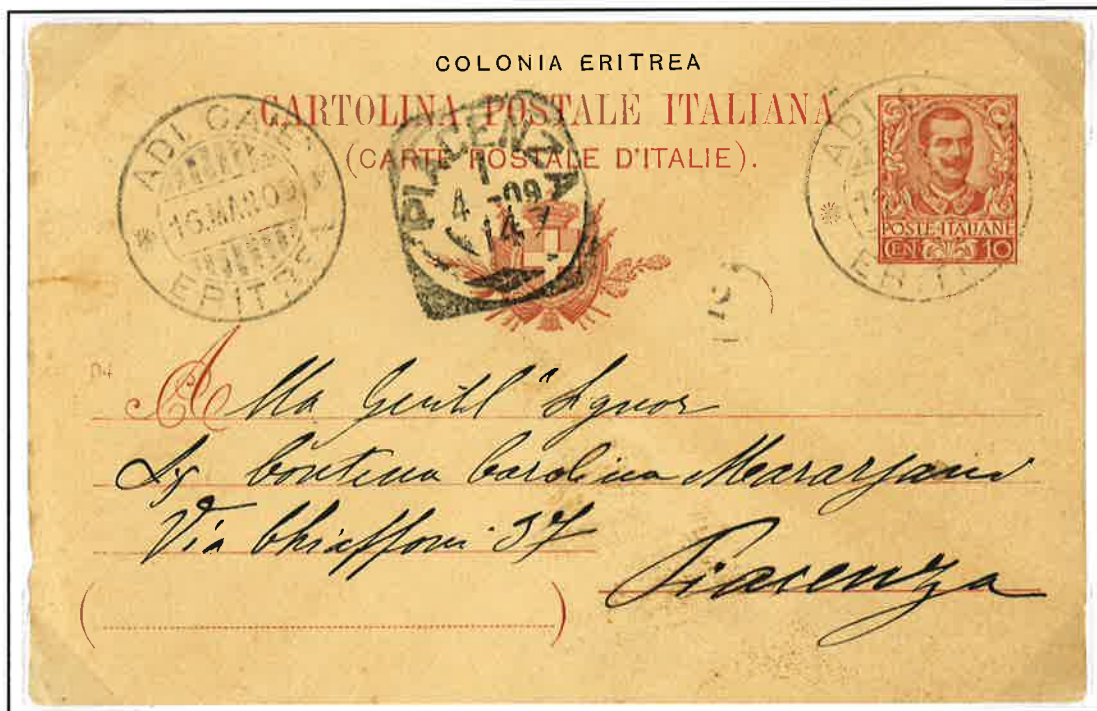 COLONIA ERITREA
CARTOLINA POSTALE ITALIANA
(CARTE POSTALE D'ITALIE).
ADI CAIE
16.MAR.09
ERITREA
PIACENZA
1
4 -09
14
ADI C
ERIT
POSTE·ITALIANE
CEN 10
Alla Gentil Signor
Contessa Carolina
Via Chiapponi 37
Piacenza